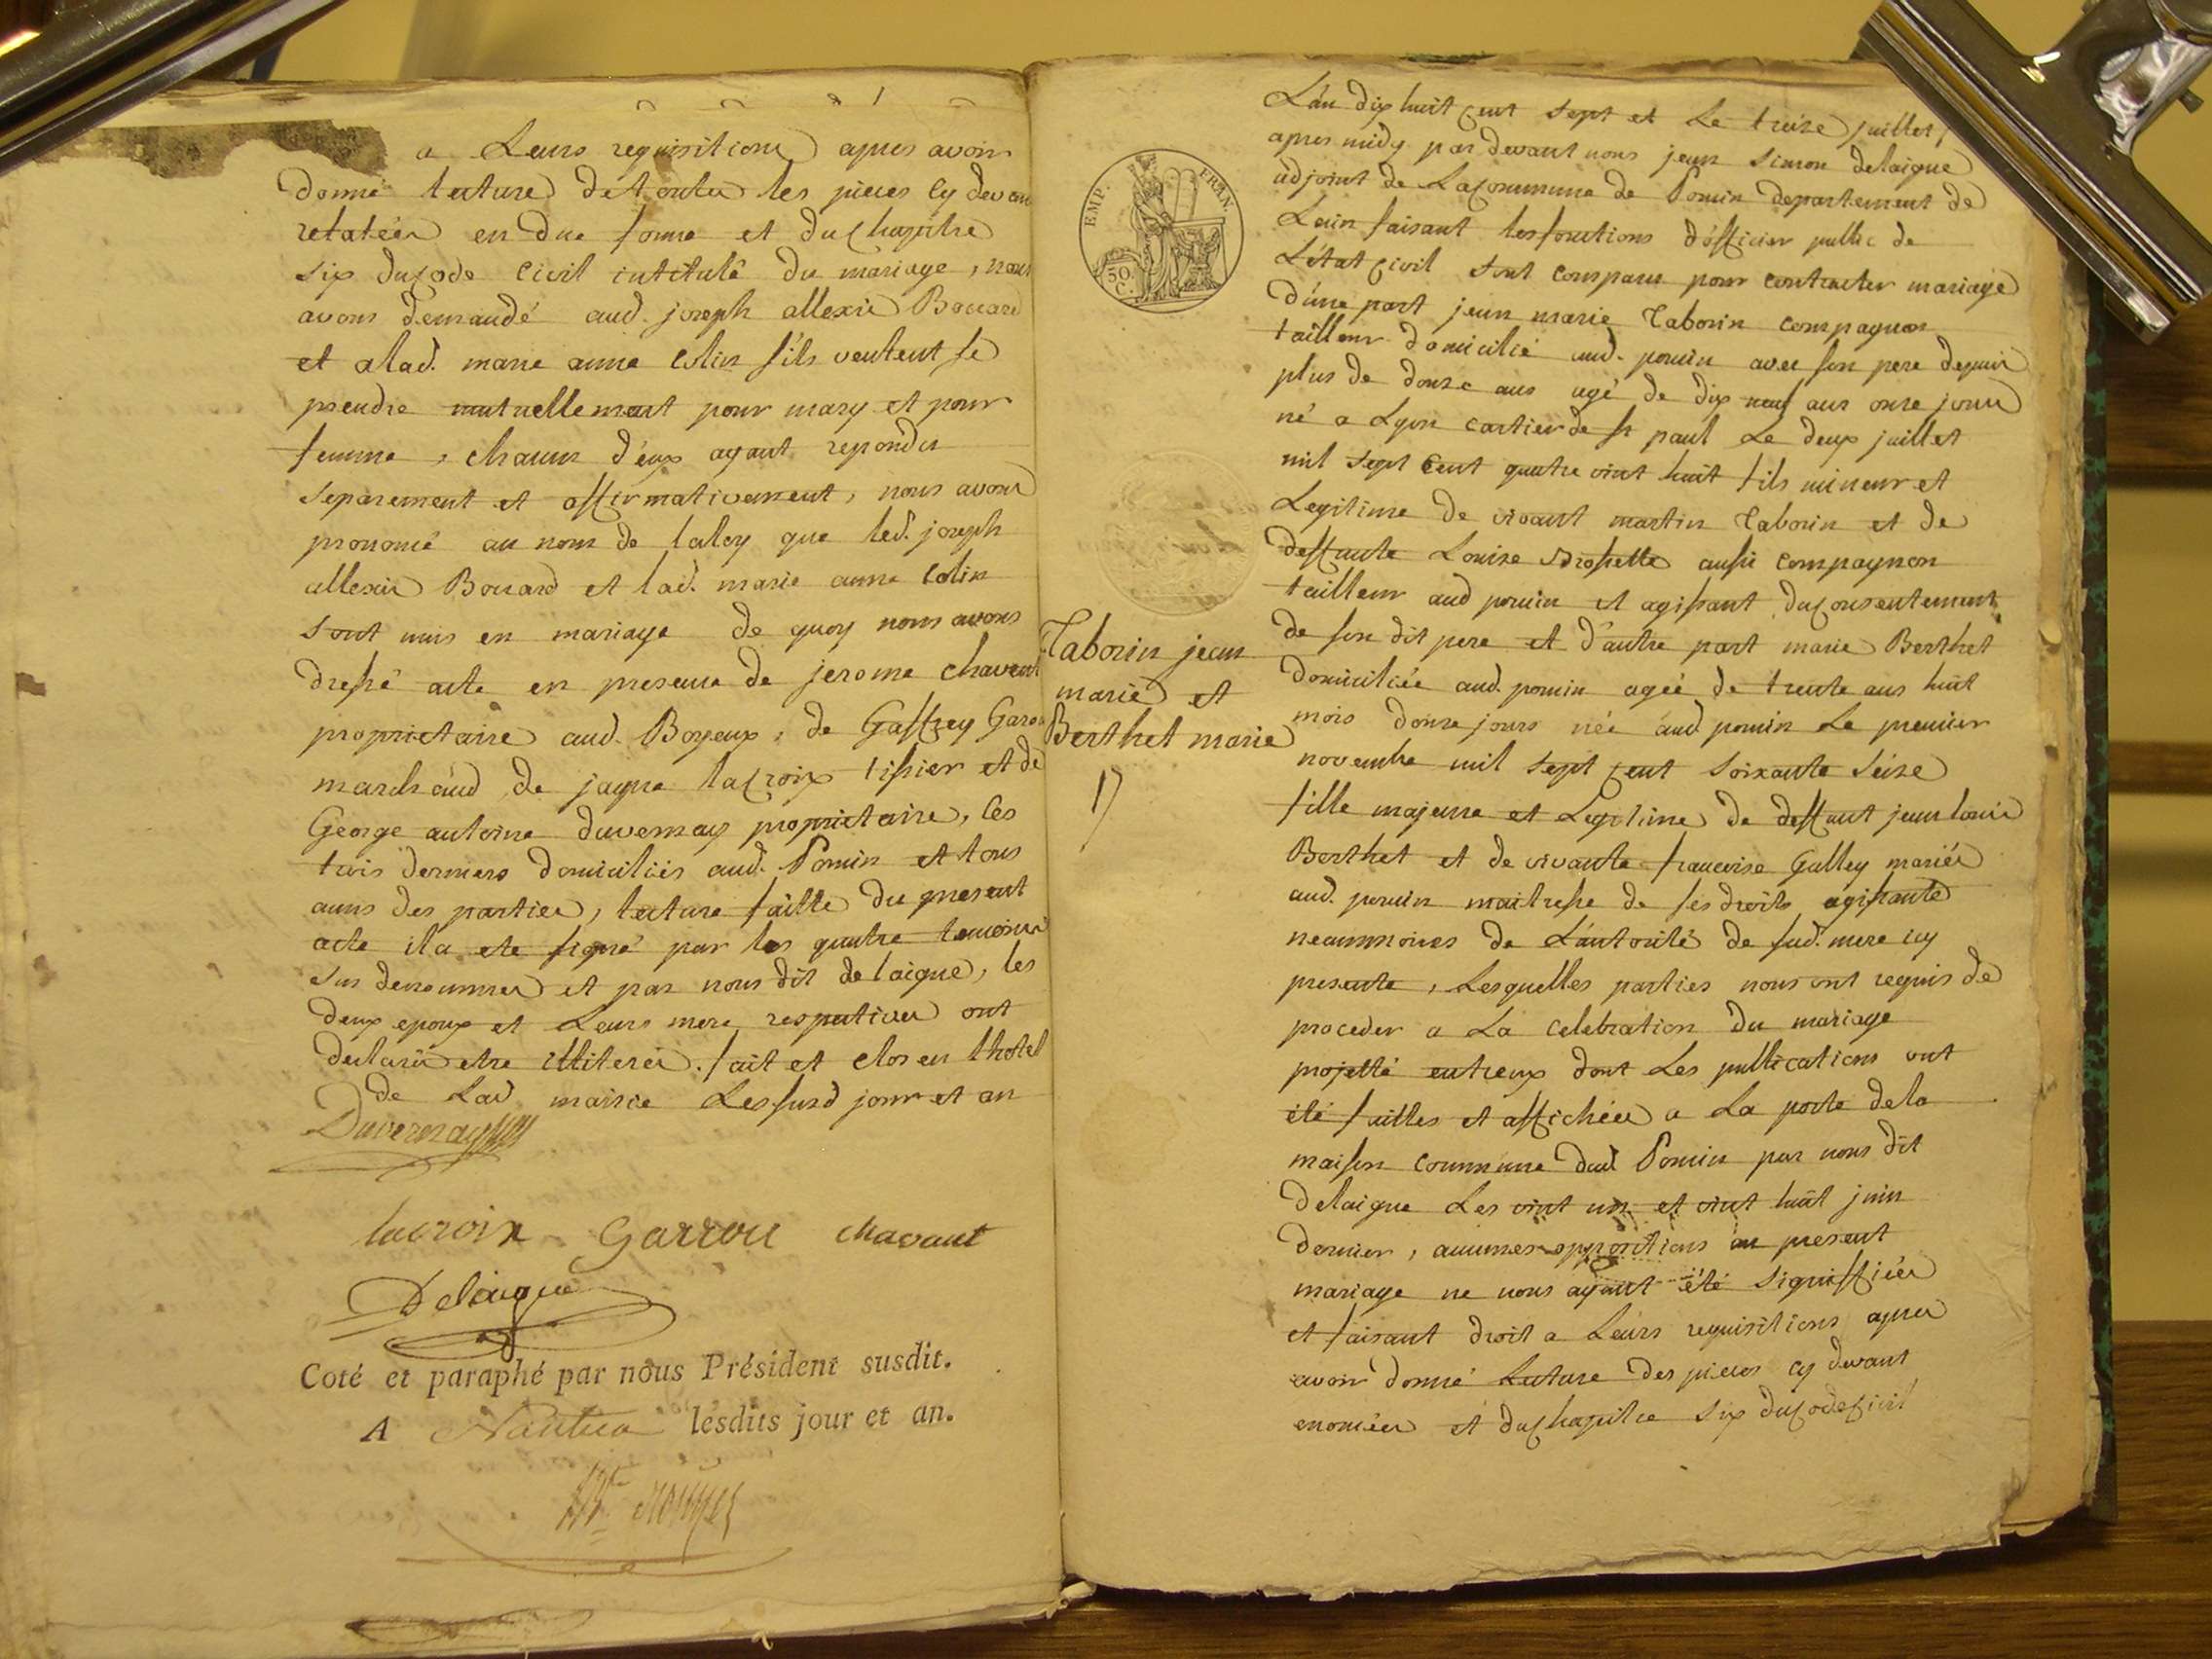 a Leurs requisitions apres avoir
donné lecture de toutes les pieces cy devant
relatées en due forme et du Chapitre
six du code Civil intitulé du mariage, nous
avons demandé aud. joseph allexis Bouard
et a lad. marie anne Colin s'ils veulent se
prendre mutuellement pour mary et pour
femme, chacun d'eux ayant repondu
separement et affirmativement, nous avons
prononcé au nom de la loy que led. joseph
allexis Bouard et lad. marie anne Colin
sont unis en mariage de quoy nous avons
dressé acte en presence de jerome Chavent
proprietaire aud. Boyeux, de Gaffrey
marchand de jaque lacroix tissier et de
George antoine duvernay proprietaire, les
trois derniers domiciliés aud. Poncin et tous
amis des parties, lecture faitte du present
acte il a ete signé par les quatre temoins
sus denommés et par nous dit delaigue, les
deux epoux et Leurs mere respectives ont
declaré etre illiterés. fait et clos en l'hotel
de Lad mairie Les susd jour et an
Duvernay
lacroix Garrou chavant
Delaigue
Coté et paraphé par nous Président susdit.
A Nantua lesdits jour et an.
EMP. FRAN.
50 C.
Taborin jean
marie et
Berthet marie
17
L'an dix huit cent sept et Le treize juillet
apres midy par devant nous jean simon delaigue
adjoint de La commune de Poncin departement de
Lain faisant les fonctions d'officier public de
L'état Civil sont comparus pour contracter mariage
d'une part jean marie Taborin compagnon
tailleur domicilié aud. poncin avec son pere depuis
plus de douze ans agé de dix neuf ans onze jours
né a Lyon cartier de st paul Le deux juillet
mil sept Cent quatre vint huit fils mineur et
Legitime de vivant martin Taborin et de
deffunte Louise aussi compagnon
tailleur aud poncin et agissant du consentement
de son dit pere et d'autre part marie Berthet
domiciliée aud. poncin agée de trente ans huit
mois douze jours née aud poncin Le premier
novembre mil sept cent soixante seize
fille majeure et Legitime de deffunt jean louis
Berthet et de vivante francoise Galley mariés
aud. poncin maitresse de ses droits agissante
neammoins de L'autorité de sad. mere icy
presente, Lesquelles parties nous ont requis de
proceder a La celebration du mariage
projetté entreux dont Les publications ont
été faittes et affichées a La porte de la
maison commune dud Poncin par nous dit
delaigue Les vint un et vint huit juin
dernier, aucunes oppositions au present
mariage ne nous ayant été signiffiées
et faisant droit a Leurs requisitions apres
avoir donné Lecture des pieces cy devant
enoncées et du chapitre six du code civil